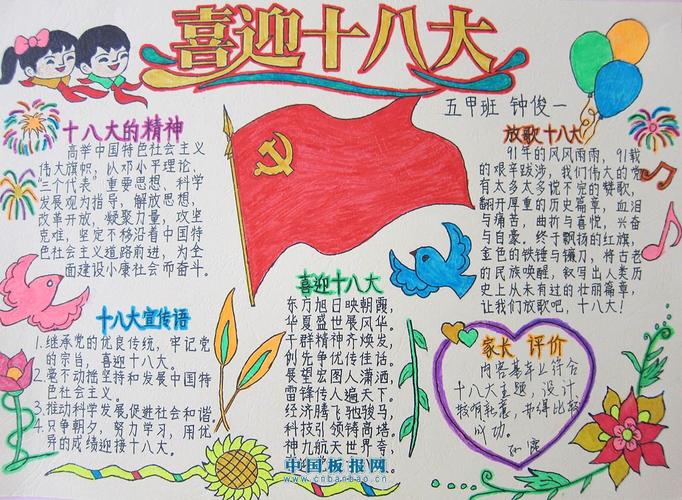 喜迎十八大
五甲班 钟俊一
十八大的精神
高举中国特色社会主义
伟大旗帜，以邓小平理论，
三个代表、重要思想、科学
发展观为指导，解放思想，
改革开放，凝聚力量，攻坚
克难，坚定不移沿着中国特
色社会主义道路前进，为全
面建设小康社会而奋斗。
放歌十八大
91年的风风雨雨，91载
的艰辛跋涉，我们伟大的党
有太多太多说不完的赞歌，
翻开厚重的历史篇章，血泪
与痛苦，曲折与喜悦，兴奋
与自豪。终于飘扬的红旗，
金色的铁锤与镰刀，将古老
的民族唤醒，叙写出人类历
史上从未有过的壮丽篇章，
让我们放歌吧，十八大！
十八大宣传语
1.继承党的优良传统，牢记党
的宗旨，喜迎十八大。
2.毫不动摇坚持和发展中国特
色社会主义。
3.推动科学发展，促进社会和谐
4.只争朝夕，努力学习，用优
异的成绩迎接十八大。
喜迎十八大
东方旭日映朝霞，
华夏盛世展风华。
干群精神齐焕发，
创先争优传佳话。
展望宏图人潇洒，
雷锋传人遍天下。
经济腾飞驰骏马，
科技引领铸高塔。
神九航天世界夸，
家长 评价
内容基本上符合
十八大主题，设计
较有新意，
成功。
中国板报网
www.cnbanbao.cn